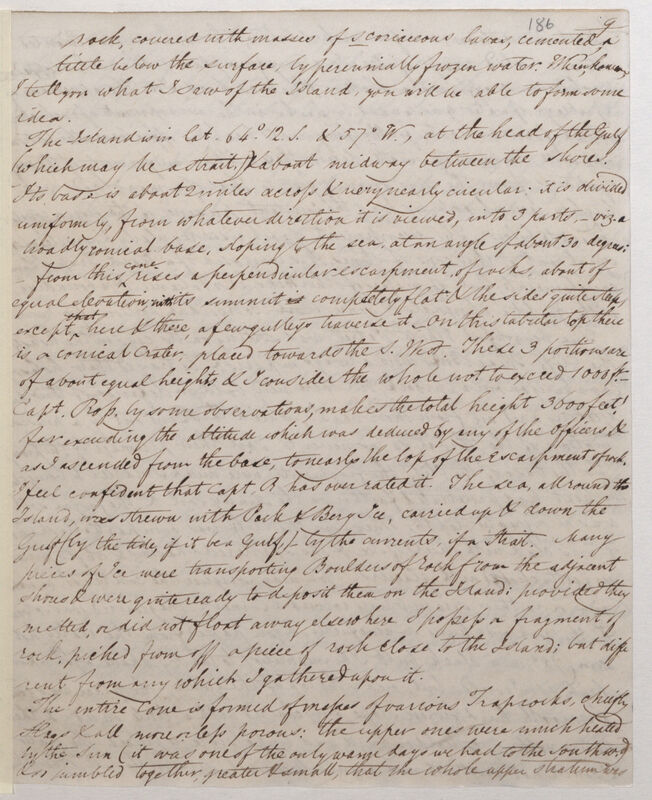 186 9
rock, covered with masses of scoriaceous lavas, cemented, a
little below the surface, by perennially frozen water. When, however,
I tell you what I saw of the Island, you will be able to form some
idea.
The Island is in lat. 64° 12 S. & 57° W., at the head of the Gulf
(which may be a strait,) & about midway between the shores.
Its base is about 2 miles across & very nearly circular: it is divided
uniformly, from whatever direction it is viewed, into 3 parts, – viz a
broadly conical base, sloping to the sea, at an angle of about 30 degrees:
– from this cone rises a perpendicular escarpment of rocks, about of
equal elevation, with its summit completely flat & the sides quite steep,
except that here & there, a few gulleys traverse it – On this tabular top there
is a conical Crater, placed towards the S. West. These 3 portions are
of about equal heights & I consider the whole not to exceed 1000 ft –
Capt. Ross, by some observations, makes the total height 3000 feet!
far exceeding the altitude which was deduced by any of the Officers &
as I ascended from the base, to nearly the top of the Escarpment of rock,
I feel confident that Capt R has over rated it. The sea, all round the
Island, was strewn with Pack & Berg Ice, carried up & down the
Gulf (by the tide, if it be a Gulf,) – by the currents, if a Strait. Many
pieces of Ice were transporting Boulders of rock from the adjacent
shores & were quite ready to deposit them on the Island; provided they
melted, or did not float away elsewhere I possess a fragment of
rock, picked from off a piece of rock close to the Island; but diffe
rent from any which I gathered upon it.
The entire Cone is formed of masses of various Trap rocks, chiefly
& all more or less porous: the upper ones were much heated
by the Sun (it was one of the only warm days we had to the Southward)
& so jumbled together, greater & small, that the whole upper stratum was